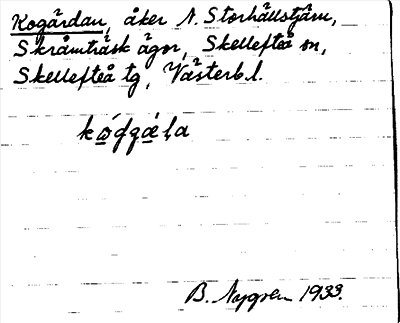 Kogärdan, åker N. Storhällstjärn,
Skråmträsk ägor, Skellefteå sn,
Skellefteå tg, Västerb. l.
B. Nygren 1933.